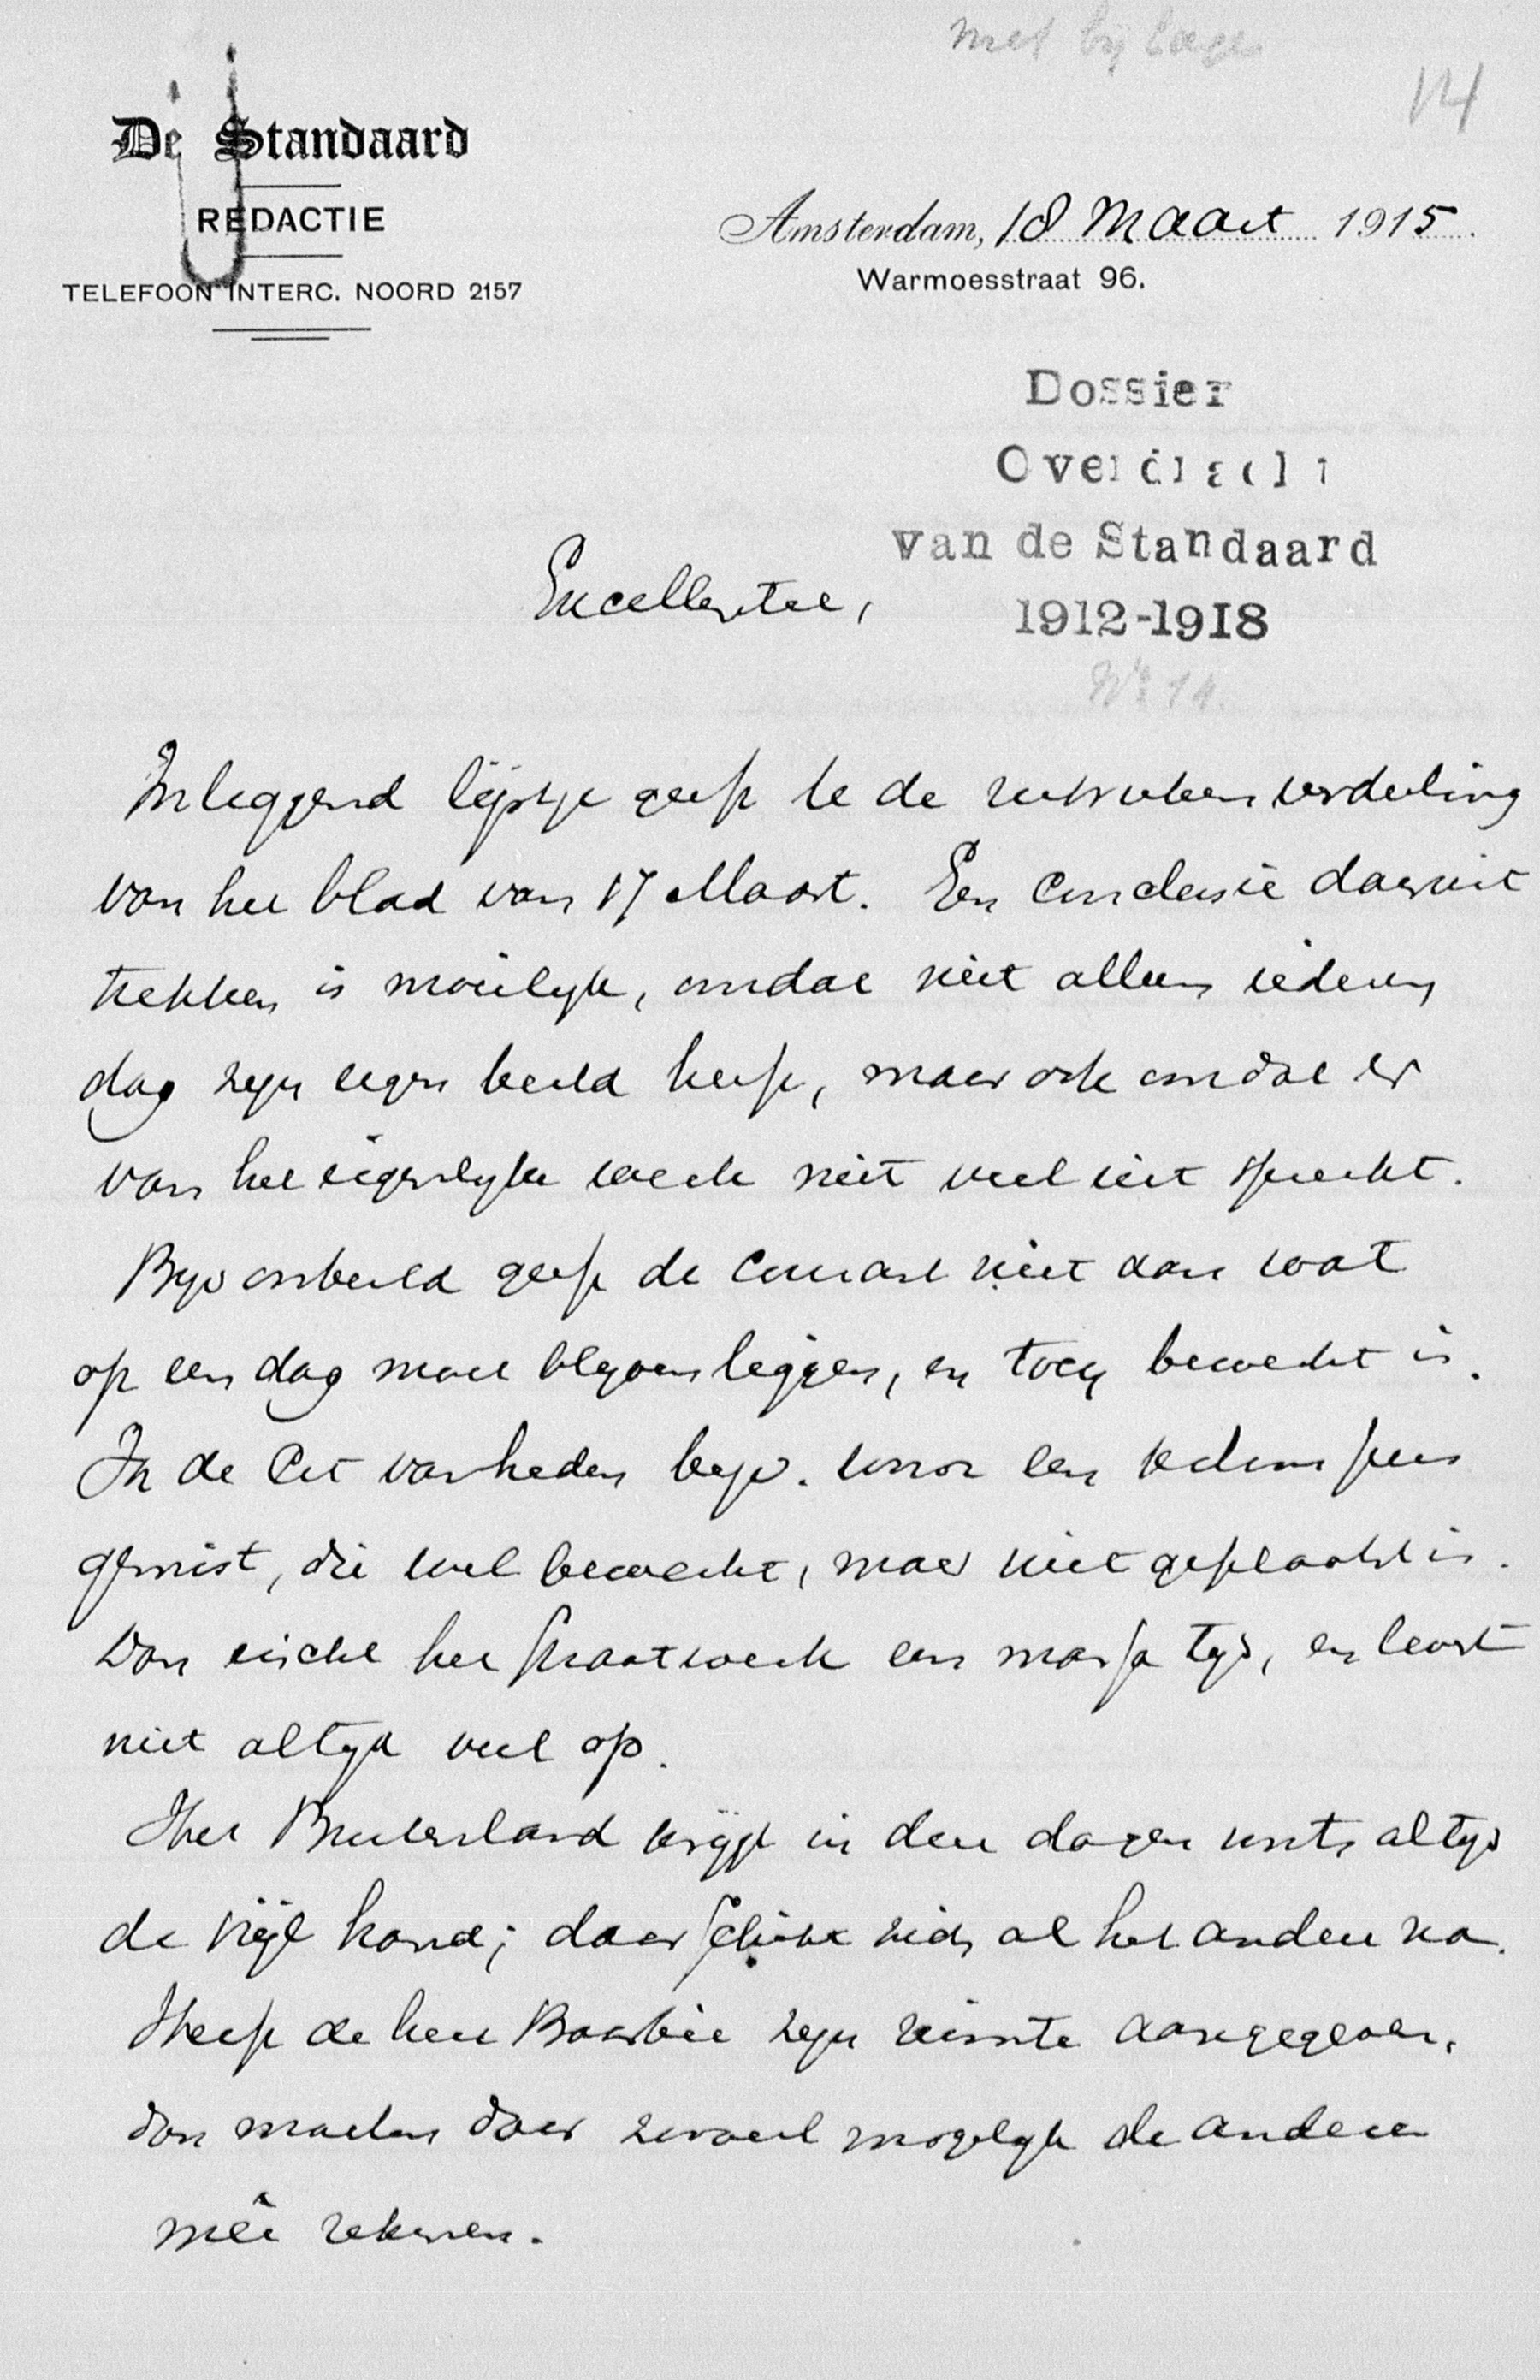 met bijlage
14
De Standaard
REDACTIE
TELEFOON INTERC. NOORD 2157
Amsterdam, 18 Maart 1915.
Warmoesstraat 96.
Dossier
Overdracht
van de Standaard
1912-1918
No 14.
Excellentie,
Inleggend lijstje geeft U de rubriekenverdeeling
van het blad van 17 Maart. Een conclusie daaruit
trekken is moeilijk, omdat niet alleen iedere
dag zijn eigen beeld heeft, maar ook omdat er
van het eigenlijke werk niet veel uit spreekt.
Bijvoorbeeld geeft de courant niet aan wat
op een dag moet blijven liggen, en toch bewerkt is.
In de Crt van heden bijv. wordt een kolom pers
gemist, die wel bewerkt, maar niet geplaatst is.
Dan eischt het straatwerk een massa tijd, en levert
niet altijd veel op.
Het Buitenland krijgt in deze dagen vrijwel altijd
de vrije hand; daar schikt zich al het andere na.
Heeft de heer Baarbé zijn ruimte aangegeven,
dan moeten daar zooveel mogelijk de anderen
meê rekenen.